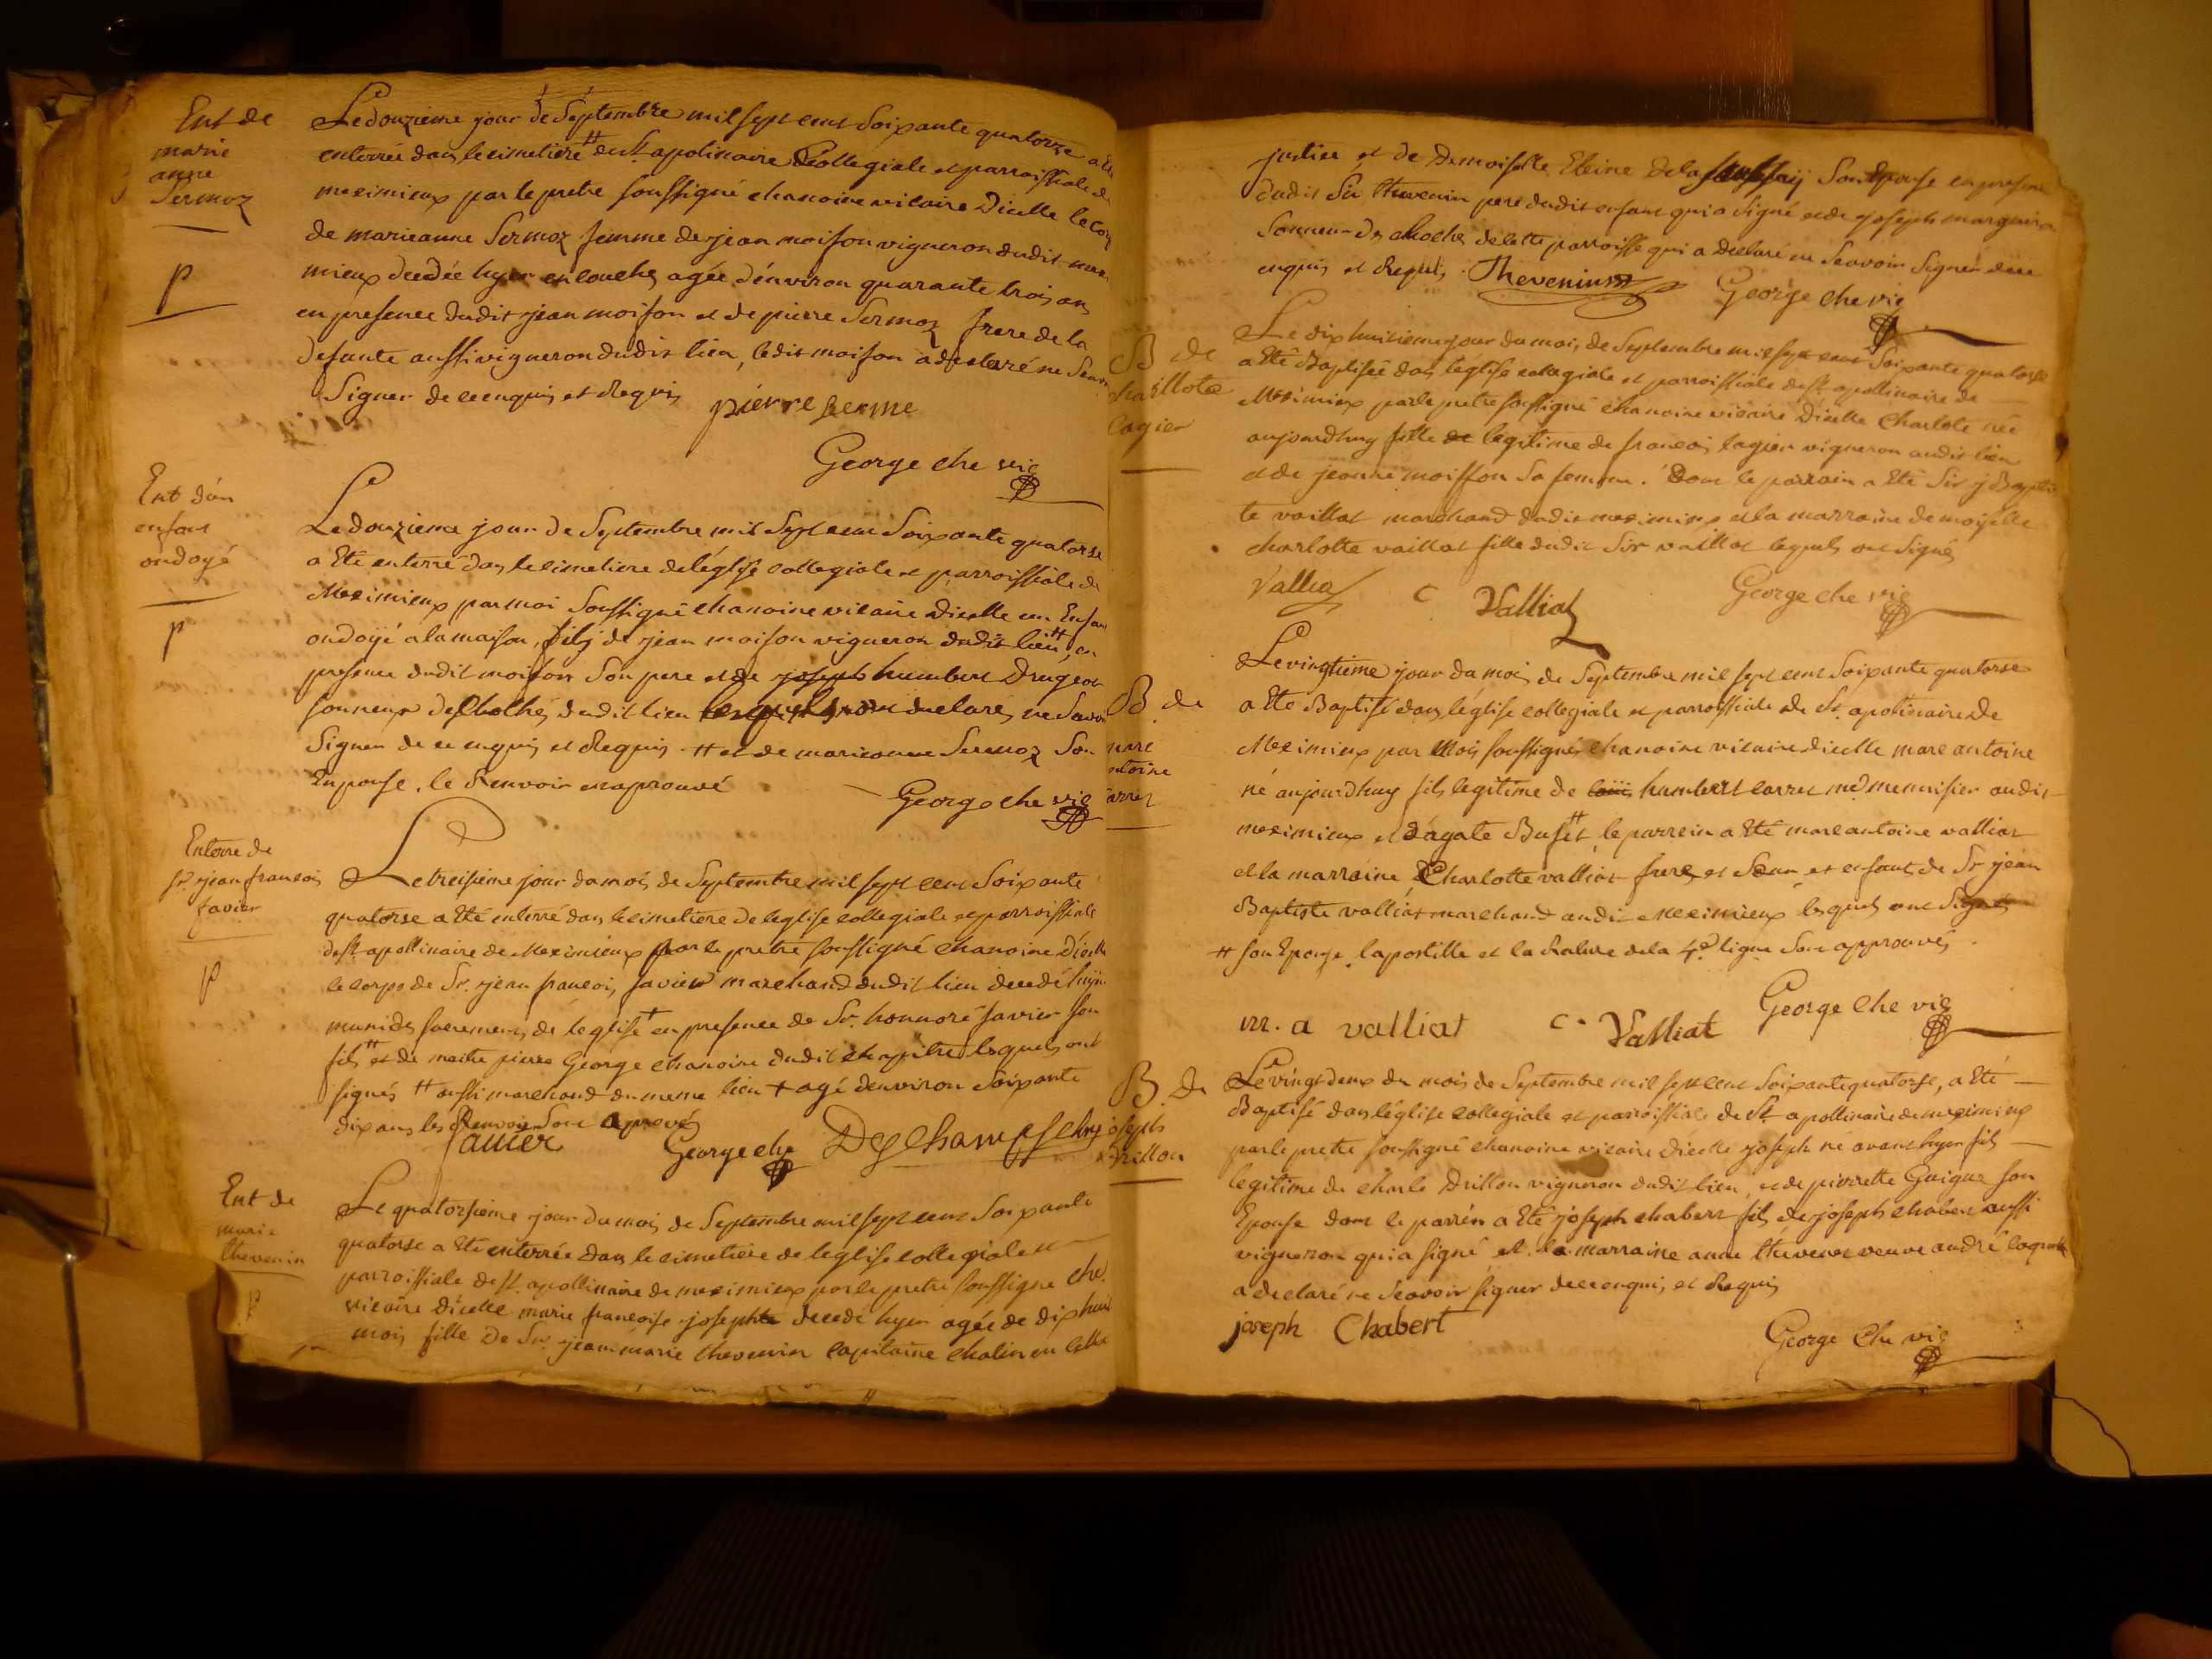 Ent de
marie
anne
Sermoz
P
Le douzieme jour de Septembre mil sept cent Soixante quatorze a Eté
enterrée dans le cimetiere # de St. apolinaire Collegiale et parroissiale de
meximieux par le pretre soussigné chanoine vicaire Dicelle le corps
de marieanne Sermoz femme de jean moison vigneron dudit mexi
mieux decedée hyer en couches agée d'environ quarante trois ans
en presence dudit jean moison et de pierre Sermoz frere de la
defunte aussi vigneron dudit lieu, ledit moison a declaré ne Seavoir
Signer de ce enquis et Requis
pierre serme
George che vic
Ent d'un
enfant
ondoyé
P
Le douzieme jour de Septembre mil Sept cent Soixante quatorse
a Eté enterré dans le cimetiere de l'église collegiale et parroissiale de
Meximieux par moi Soussigné chanoine vicaire dicelle un Enfant
ondoyé a la maison, fils de jean moison vigneron dudit lieu #, en
presence dudit moison Son pere et de joseph humbert Drugeon
Sonneur de Cloches dudit lieu lesquels ont declarés ne Savoir
Signer de ce enquis et Requis # et de marieanne Sermoz Son
Epouse, le Renvoir enaprouvé
George che vic
Enterre de
Sr. jean francois
favier
P
Le treisieme jour du mois de Septembre mil sept cent Soixante
quatorse a Eté enterré dans le cimetiere de leglise collegiale et parroissiale
de St. apollinaire de Meximieux par le pretre soussigné chanoine Dicelle
le corps de Sr. jean francois favier marchand dudit lieu decedé hyer
munides sacremens de leglise + en presence de Sr. honnoré favier son
fils # et de maitre pierre George chanoine dudit chapitre lesquels ont
signés # aussi marchand du meme lieu + agé denviron Soixante
dix ans les Renvoir Sont aprovés
favier George che Deschamps chne
Ent de
marie
thevenin
P
Le quatorsieme jour du mois de Septembre mil sept cent Soixante
quatorse a Eté enterrée dans le cimetiere de leglise collegiale et
parroissiale de St. apollinaire de meximieux par le pretre soussigne che.
vicaire dicelle marie francoise josephte decedé hyer agée de dix huit
mois fille De Sr. jean marie thevenin capitaine chatin en cette
justice et de Demoiselle Son Epouse en presence
dudit Sr thevenin pere dudit enfant qui a signé et de joseph
Sonneur de cloches de cette parroisse qui a declaré ne Seavoir Signer de ce
enquis et Requis. Thevenin
George che vic
B de
charlote
lagier
Le dix huitieme jour du mois de Septembre mil sept cent Soixante quatorse
a Eté Baptisée dans l'église collegiale et parroissiale de St. apollinaire de
Meximieux par le pretre soussigné chanoine vicaire Dicelle Charlote née
aujourdhuy fille de legitime de francois lagier vigneron audit lieu
et de jeanne moisson Sa femme. Dont le parrain a Eté Sir j Baptis
te vaillat marchand dudit meximieux et la marraine demoiselle
charlotte vaillat fille dudit Sir vaillat lesquels ont Signés
Vallia C Valliat George che vic
B. de
marc
antoine
carret
Le vingtieme jour du mois de Septembre mil sept cent Soixante quatorse
a Eté Baptisé dans l'église collegiale et parroissiale de St. apolinaire de
Meximieux par Mois soussignés chanoine vicaire dicelle marc antoine
né aujourdhuy fils legitime de louis humbert carret md menuisier audit
meximieux et d'agate Buset #, le parrein a Eté marc antoine valliat
et la marraine Charlotte valliat frere et Seur et enfant de Sr jean
Baptiste valliat marchand audit Meximieux lesquels ont Signés
# son Epouse. lapostille et la Rature de la 4e. ligne Sont approuvés.
m. a valliat C. Valliat George che vic
B. de
joseph
drillon
Le vingt deux du mois de Septembre mil sept cent Soixante quatorse, a Eté
Baptisé dans l'église collegiale et parroissiale de St. apollinaire de meximieux
par le pretre soussigné chanoine vicaire dicelle joseph né avant hyer fils
legitime de charle Drillon vigneron dudit lieu, et de pierrette Guigue son
Epouse dont le parrin a Eté joseph chabert fils de joseph chabert aussi
vigneron qui a signé et la marraine anne thevenet veuve andré laquelle
a declaré ne Seavoir signer de ce enquis et Requis
joseph Chabert
George Che vic